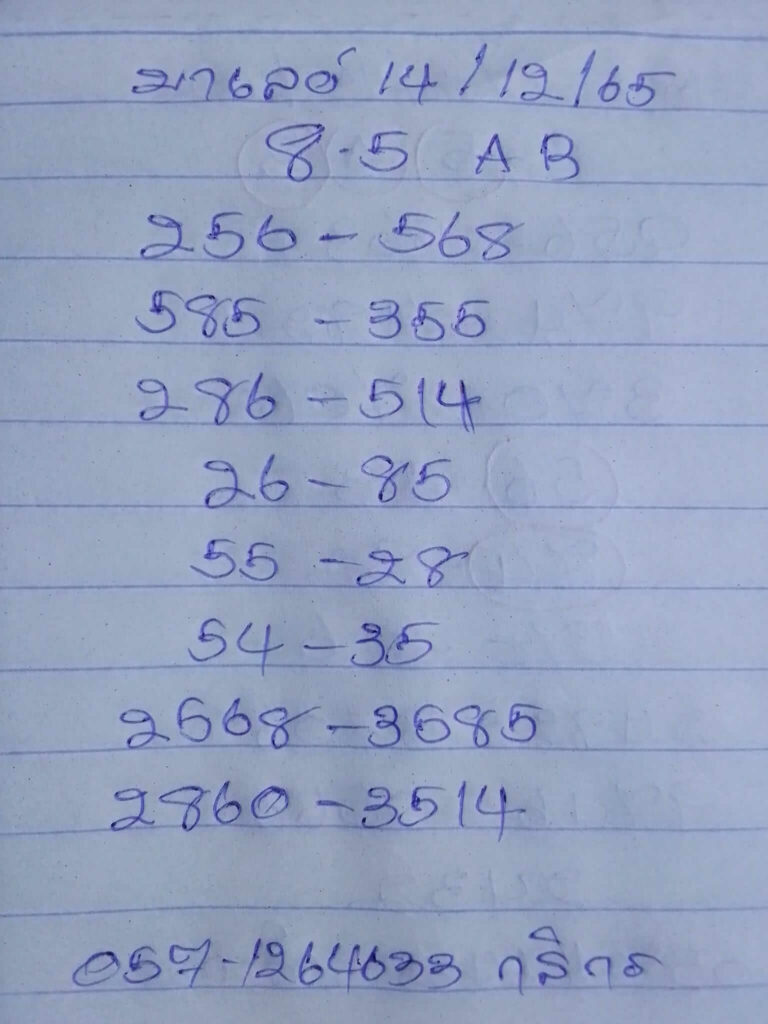 มาเลย์ 14/12/65
8-5 A B
256 - 568
585 - 355
286 - 514
26 - 85
55 - 28
54 - 35
2568 - 3585
2860 - 3514
057-1264633